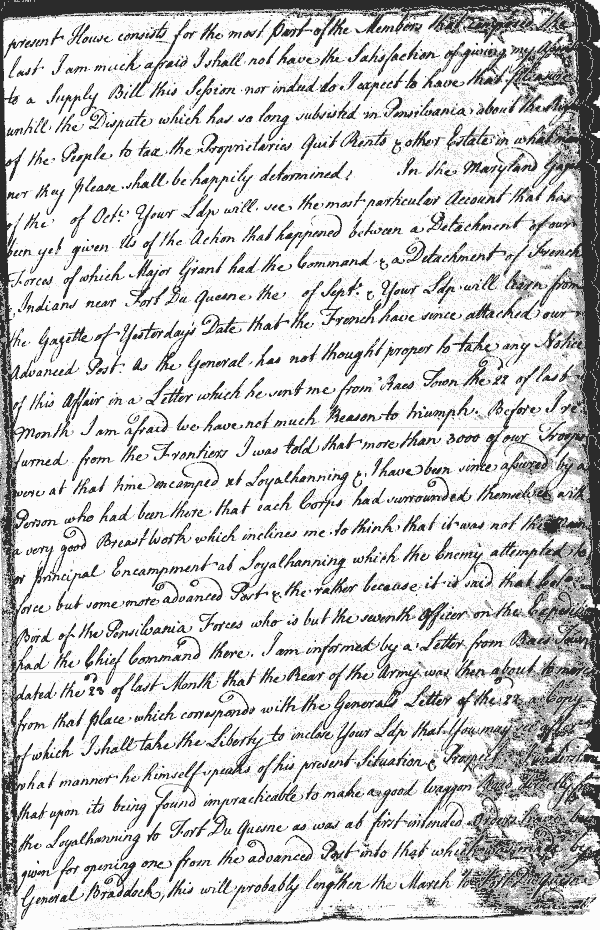 present House consists for the most Part of the Members that composed the
last I am much afraid I shall not have the Satisfaction of giving my Assent
to a Supply Bill this Session nor indeed do I expect to have that pleasure
untill the Dispute which has so long subsisted in Pensilvania about the Right
of the People to tax the Proprietaries Quit Rents & other Estate in what man
ner they please shall be happily determined; In the Maryland Gaz
of the of Octr. Your Ldp will see the most particular Account that has
been yet given Us of the Action that happened between a Detachment of our
Forces of which Major Grant had the Command & a Detachment of French
& Indians near Fort Du Quesne the of Septr. & Your Ldp will learn from
the Gazette of Yesterdays Date that the French have since attached our
Advanced Post. As the General has not thought proper to take any Notice
of this Affair in a Letter which he sent me from Raes Town the 22 of last
Month I am afraid we have not much Reason to triumph. Before I re
turned from the Frontiers I was told that more than 3000 of our Troops
were at that time encamped at Loyalhanning & I have been since assured by a
Person who had been there that each Corps had surrounded themselves with
a very good Breastwork which inclines me to think that it was not the Main
or principal Encampment at Loyalhanning which the Enemy attempted to
force but some more advanced Post & the rather because it is said that Colo.
Bord of the Pensilvania Forces who is but the seventh Officer on the Expedition
had the Chief Command there. I am informed by a Letter from Raes Town
dated the 23 of last Month that the Rear of the Army was then about to march
from that place which corresponds with the General's Letter of the 22 a Copy
of which I shall take the Liberty to inclose Your Ldp that You may see
what manner he himself speaks of his present Situation & Prospect
that upon its being found impracticable to make a good Waggon Road
the Loyalhanning to Fort Du Quesne as was at first intended Orders
given for opening one from the advanced Post into that which
General Braddock, this will probably lengthen the March to Fort Du Quesne